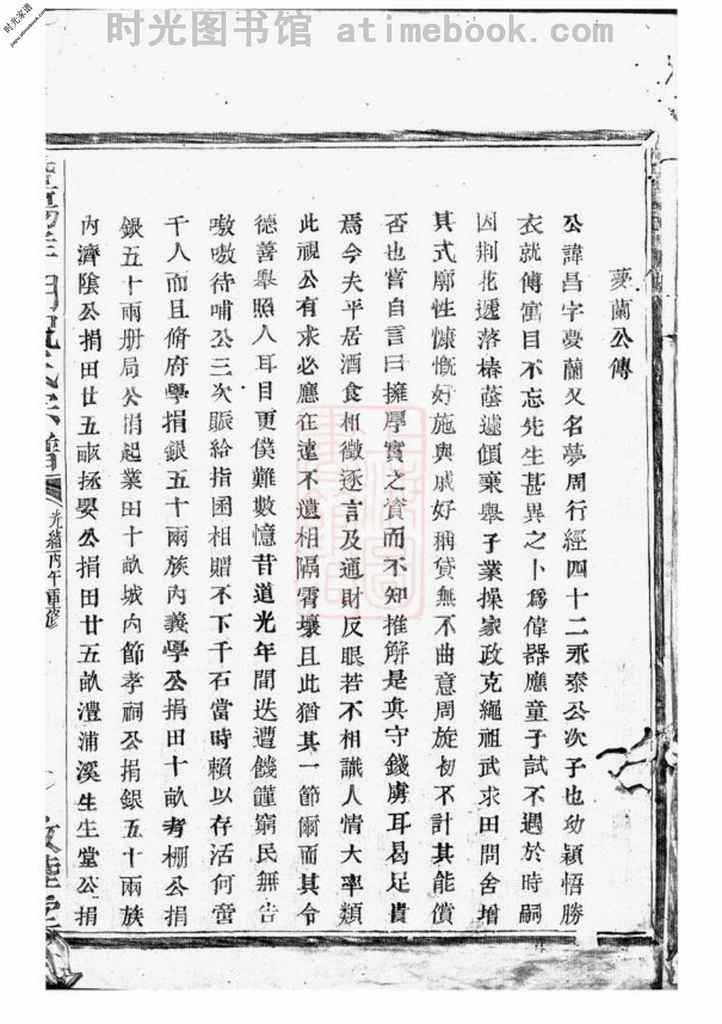 时光图书馆 atimebook.com
时光家谱
jiapu.atimebook.com
夢蘭公傳
公諱昌字夢蘭又名夢周行經四十二永泰公次子也幼穎悟勝
衣就傅寓目不忘先生甚異之卜爲偉器應童子試不遇於時嗣
因荆花遞落椿蔭遽傾棄舉子業操家政克繩祖武求田問舍增
其式廓性慷慨好施與戚好稱貸無不曲意周旋初不計其能償
否也嘗自言曰擁厚實之資而不知推解是眞守錢虜耳曷足貴
焉今夫平居酒食相徵逐言及通財反眼若不相識人情大率類
此視公有求必應在遠不遺相隔霄壤且此猶其一節爾而其令
德善舉照人耳目更僕難數憶昔道光年間迭遭饑饉窮民無告
嗷嗷待哺公三次賑給指囷相贈不下千石當時賴以存活何啻
千人而且脩府學捐銀五十兩族內義學公捐田十畝考棚公捐
銀五十兩册局公捐起業田十畝城内節孝祠公捐銀五十兩族
內濟陰公捐田廿五畝拯嬰公捐田廿五畝澧浦溪生生堂公捐
氏宗譜
光緒丙午重修
敦睦堂